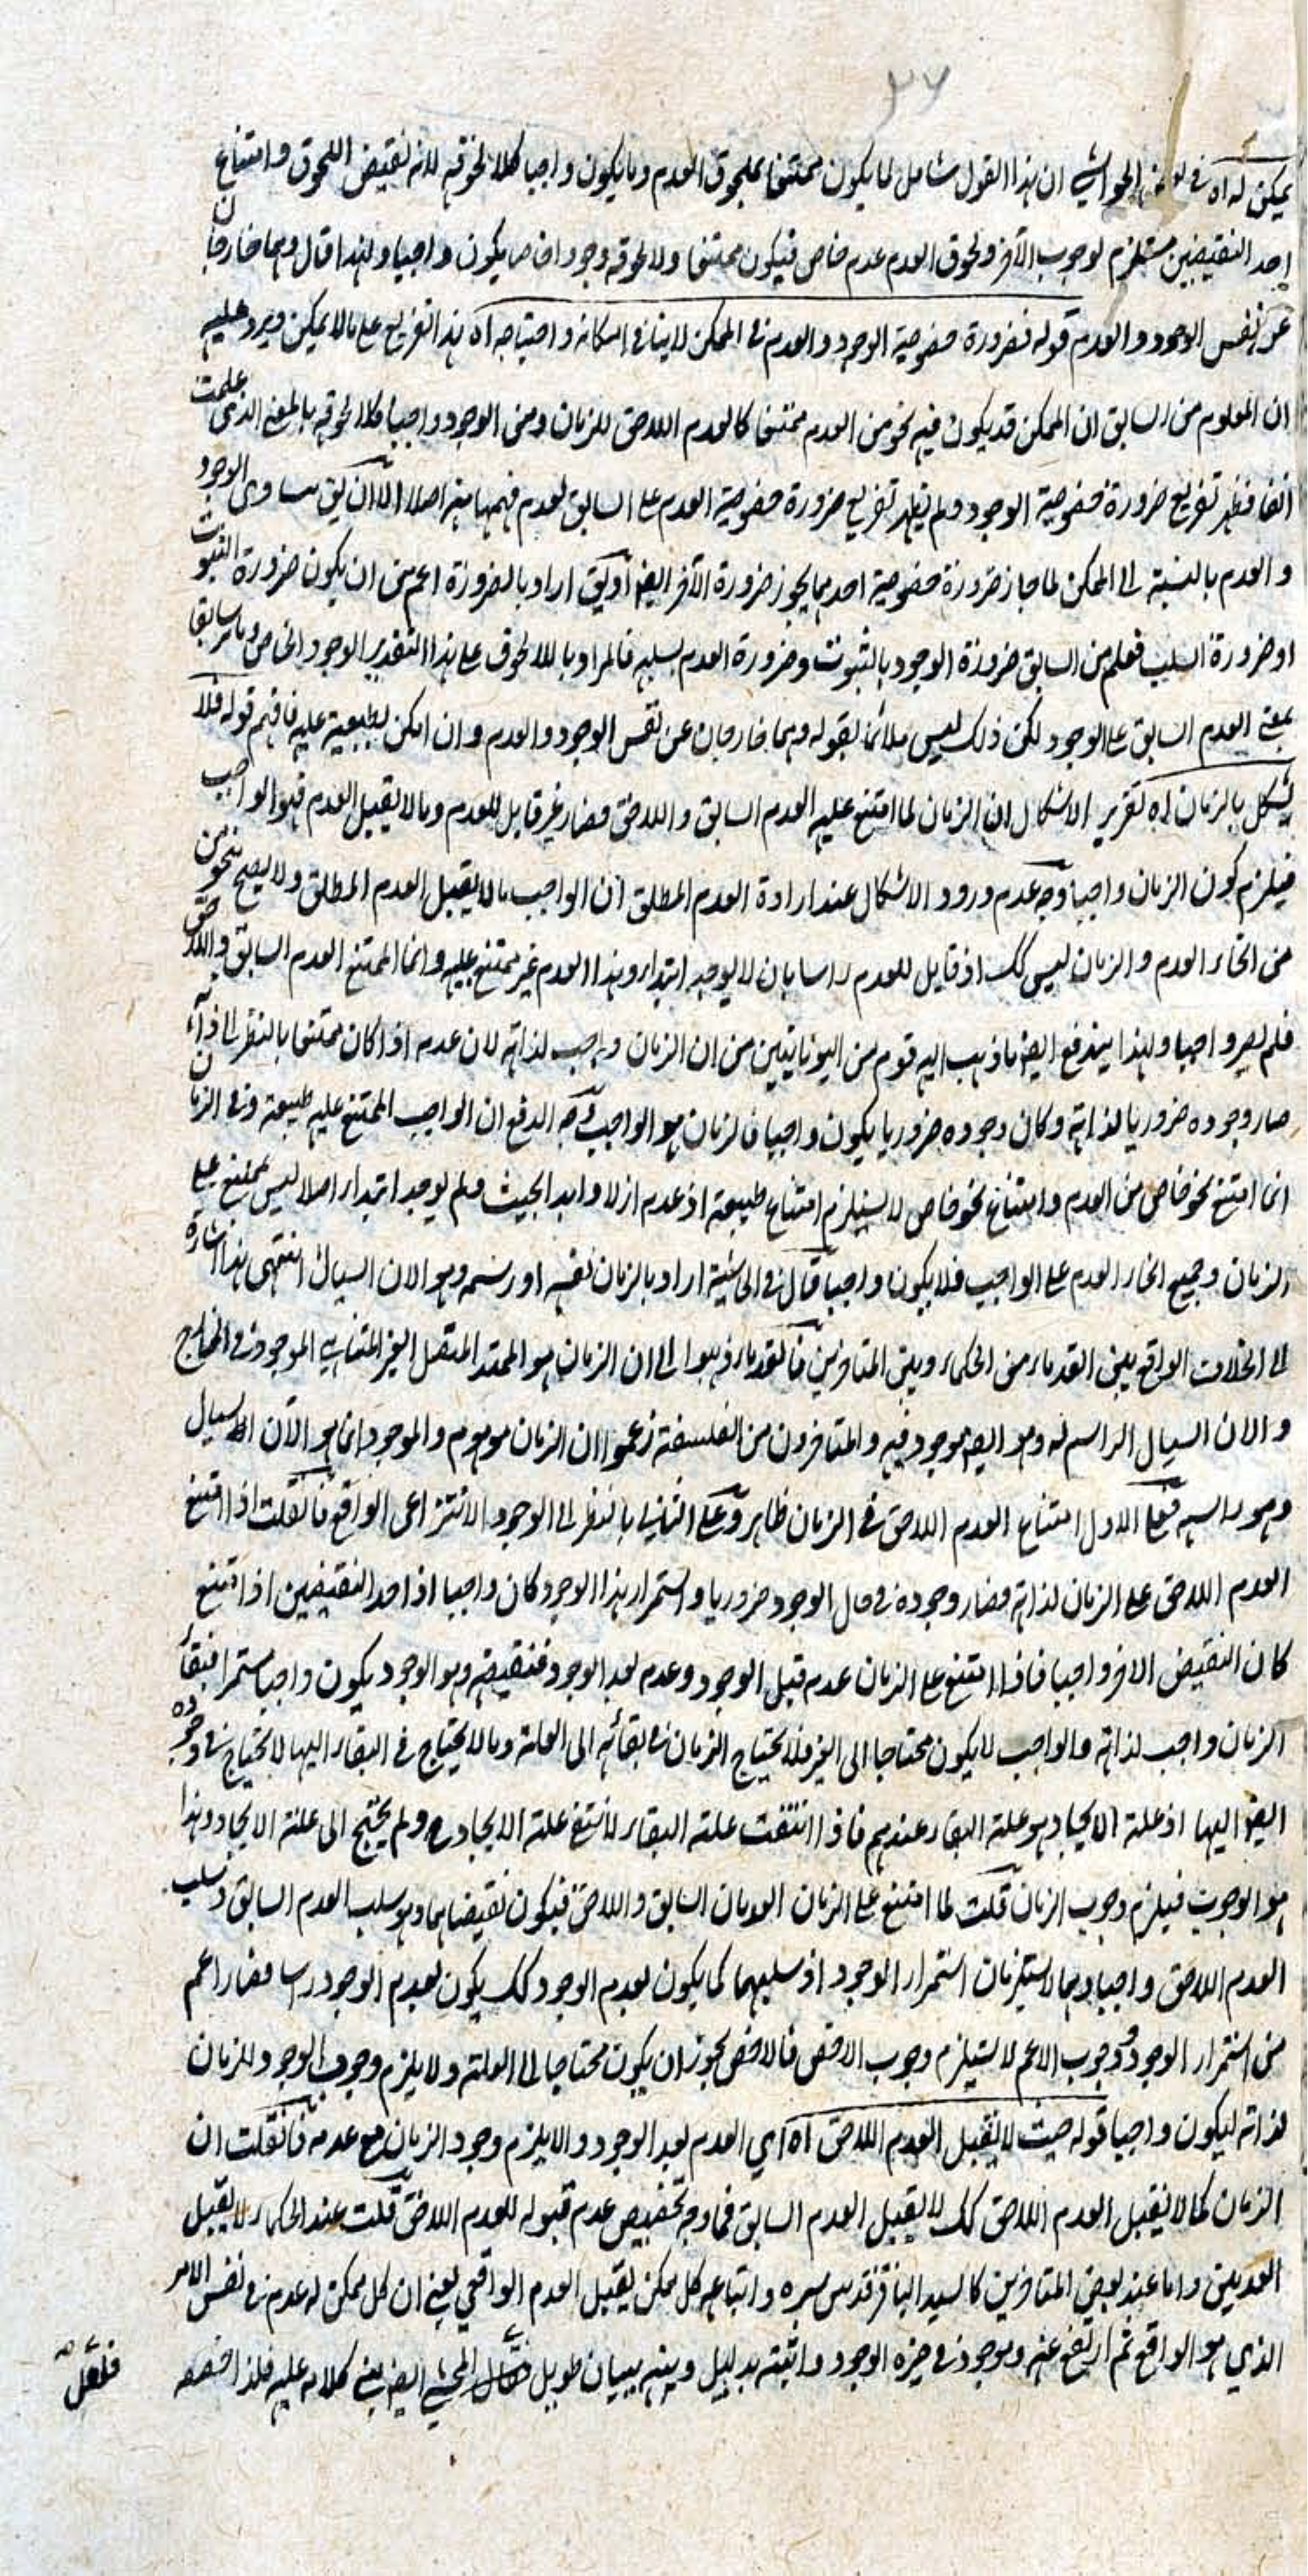 ٣٧
يمكن له اه في بعض الحواشي ان هذا القول شامل لما يكون ممتنعا كلحوق العدم وما يكون واجبا كلا لحوقه لانه نقيض اللحوق وامتناع
احد النقيضين مستلزم لوجوب الآخر ولحوق العدم عدم خاص فيكون ممتنعا ولا لحوقه وجود خاص يكون واجبا ولهذا قال وهما خارجان
عن نفس الوجود والعدم قوله فضرورة خصوصية الوجود والعدم في الممكن لا ينافي امكانه واحتياجه اه هذا تفريع على ما لا يمكن ويرد عليه
ان المعلوم من السابق ان الممكن قد يكون فيه نحو من العدم ممتنعا كالعدم اللاحق للزمان ومن الوجود واجبا كلا لحوقه بالمعنى الذي علمت
آنفا فظهر تفريع ضرورة خصوصية الوجود ولم يظهر تفريع ضرورة خصوصية العدم على السابق لعدم فهمها منه اصلا الا ان يق تساوى الوجود
والعدم بالنسبة الى الممكن لما جاز ضرورة خصوصية احدهما يجوز ضرورة الآخر ايضا او يق اراد بالضرورة اعم من ان يكون ضرورة الثبوت
او ضرورة السلب فعلم من السابق ضرورة الوجود بالثبوت وضرورة العدم بسلبه فالمراد باللا لحوق على هذا التقدير الوجود الخاص وما مر سابقا
بمعنى العدم السابق على الوجود لكن ذلك ليس ملائما لقوله وهما خارجان عن نفس الوجود والعدم وان امكن تطبيقه عليه فافهم قوله فلا
يشكل بالزمان اه تقرير الاشكال ان الزمان لما امتنع عليه العدم السابق واللاحق فصار غير قابل للعدم وما لا يقبل العدم فهو الواجب
فيلزم كون الزمان واجبا وجه عدم ورود الاشكال عند ارادة العدم المطلق ان الواجب ما لا يقبل العدم المطلق ولا يصح نحو من
من انحاء العدم والزمان ليس كك اذ قابل للعدم راسا بان لا يوجد ابتداء وهذا العدم غير ممتنع عليه وانما الممتنع العدم السابق واللاحق
فلم يصر واجبا ولهذا يندفع ايضا ما ذهب اليه قوم من اليونانيين من ان الزمان واجب لذاته لان عدمه اذا كان ممتنعا بالنظر الى ذاته
صار وجوده ضروريا لذاته وكان وجوده ضروريا يكون واجبا فالزمان هو الواجب وجه الدفع ان الواجب الممتنع عليه طبيعة وفي الزمان
انما امتنع نحو خاص من العدم وامتناع نحو خاص لا يستلزم امتناع طبيعته اذ عدمه ازلا وابدا بحيث لم يوجد ابتداء اصلا ليس بممتنع على
الزمان وجميع انحاء العدم على الواجب فلا يكون واجبا قال في الحاشية اراد بالزمان نفسه او رسمه وهو الان السيال انتهى هذا اشارة
الى اختلاف الواقع بين القدماء من الحكماء وبين المتاخرين فالقدماء ذهبوا الى ان الزمان هو الممتد المتصل الغير المتناهي الموجود في الخارج
والان السيال الراسم له وهو ايضا موجود فيه والمتاخرون من الفلسفة زعموا ان الزمان موهوم والموجود انما هو الآن السيال
وهو راسمه فعلى الاول امتناع العدم اللاحق في الزمان ظاهر وعلى الثاني بالنظر الى الوجود الانتزاعي الواقع فان قلت اذا امتنع
العدم اللاحق على الزمان لذاته فصار وجوده في حال الوجود ضروريا واستمرار هذا الوجود كان واجبا اذ احد النقيضين اذا امتنع
كان النقيض الاخر واجبا فاذا امتنع على الزمان عدمه قبل الوجود وعدمه بعد الوجود فنقيضه وهو الوجود يكون واجبا مستمرا فبقاء
الزمان واجب لذاته والواجب لا يكون محتاجا الى الغير فلا يحتاج الزمان في بقائه الى العلة وما لا يحتاج في البقاء اليها لا يحتاج في وجوده
ايضا اليها اذ علة الايجاد هو علة البقاء عندهم فاذا انتفت علة البقاء لانتفى علة الايجاد ولم يحتج الى علة الايجاد وهذا
هو الوجوب فيلزم وجوب الزمان قلت لما امتنع على الزمان العدمان السابق واللاحق فيكون نقيضاهما وهو سلب العدم السابق وسلب
العدم اللاحق واجبا وهما لا يستلزمان استمرار الوجود اذ سلبهما كما يكون لعدم الوجود كك يكون لعدم الوجود راسا فصار اعم
من استمرار الوجود ووجوب الاعم لا يستلزم وجوب الاخص فالاخص يجوز ان يكون محتاجا الى العلة ولا يلزم وجوب الوجود للزمان
لذاته ليكون واجبا قوله حيث لا يقبل العدم اللاحق اه اي العدم بعد الوجود والا يلزم وجود الزمان مع عدمه فان قلت ان
الزمان كما لا يقبل العدم اللاحق كك لا يقبل العدم السابق فما وجه تخصيص عدم قبوله للعدم اللاحق قلت عند الحكماء لا يقبل
العدمين واما عند بعض المتاخرين كالسيد الباقر قدس سره واتباعه كل ممكن يقبل العدم الواقعي يعني ان كل ممكن له عدم في نفس الامر
الذي هو الواقع ثم ارتفع عنه ووجود في حيزه الوجود واثبته بدليل وبينه ببيان طويل المحشي ايضا بنى كلامه عليه فلذا خصصه